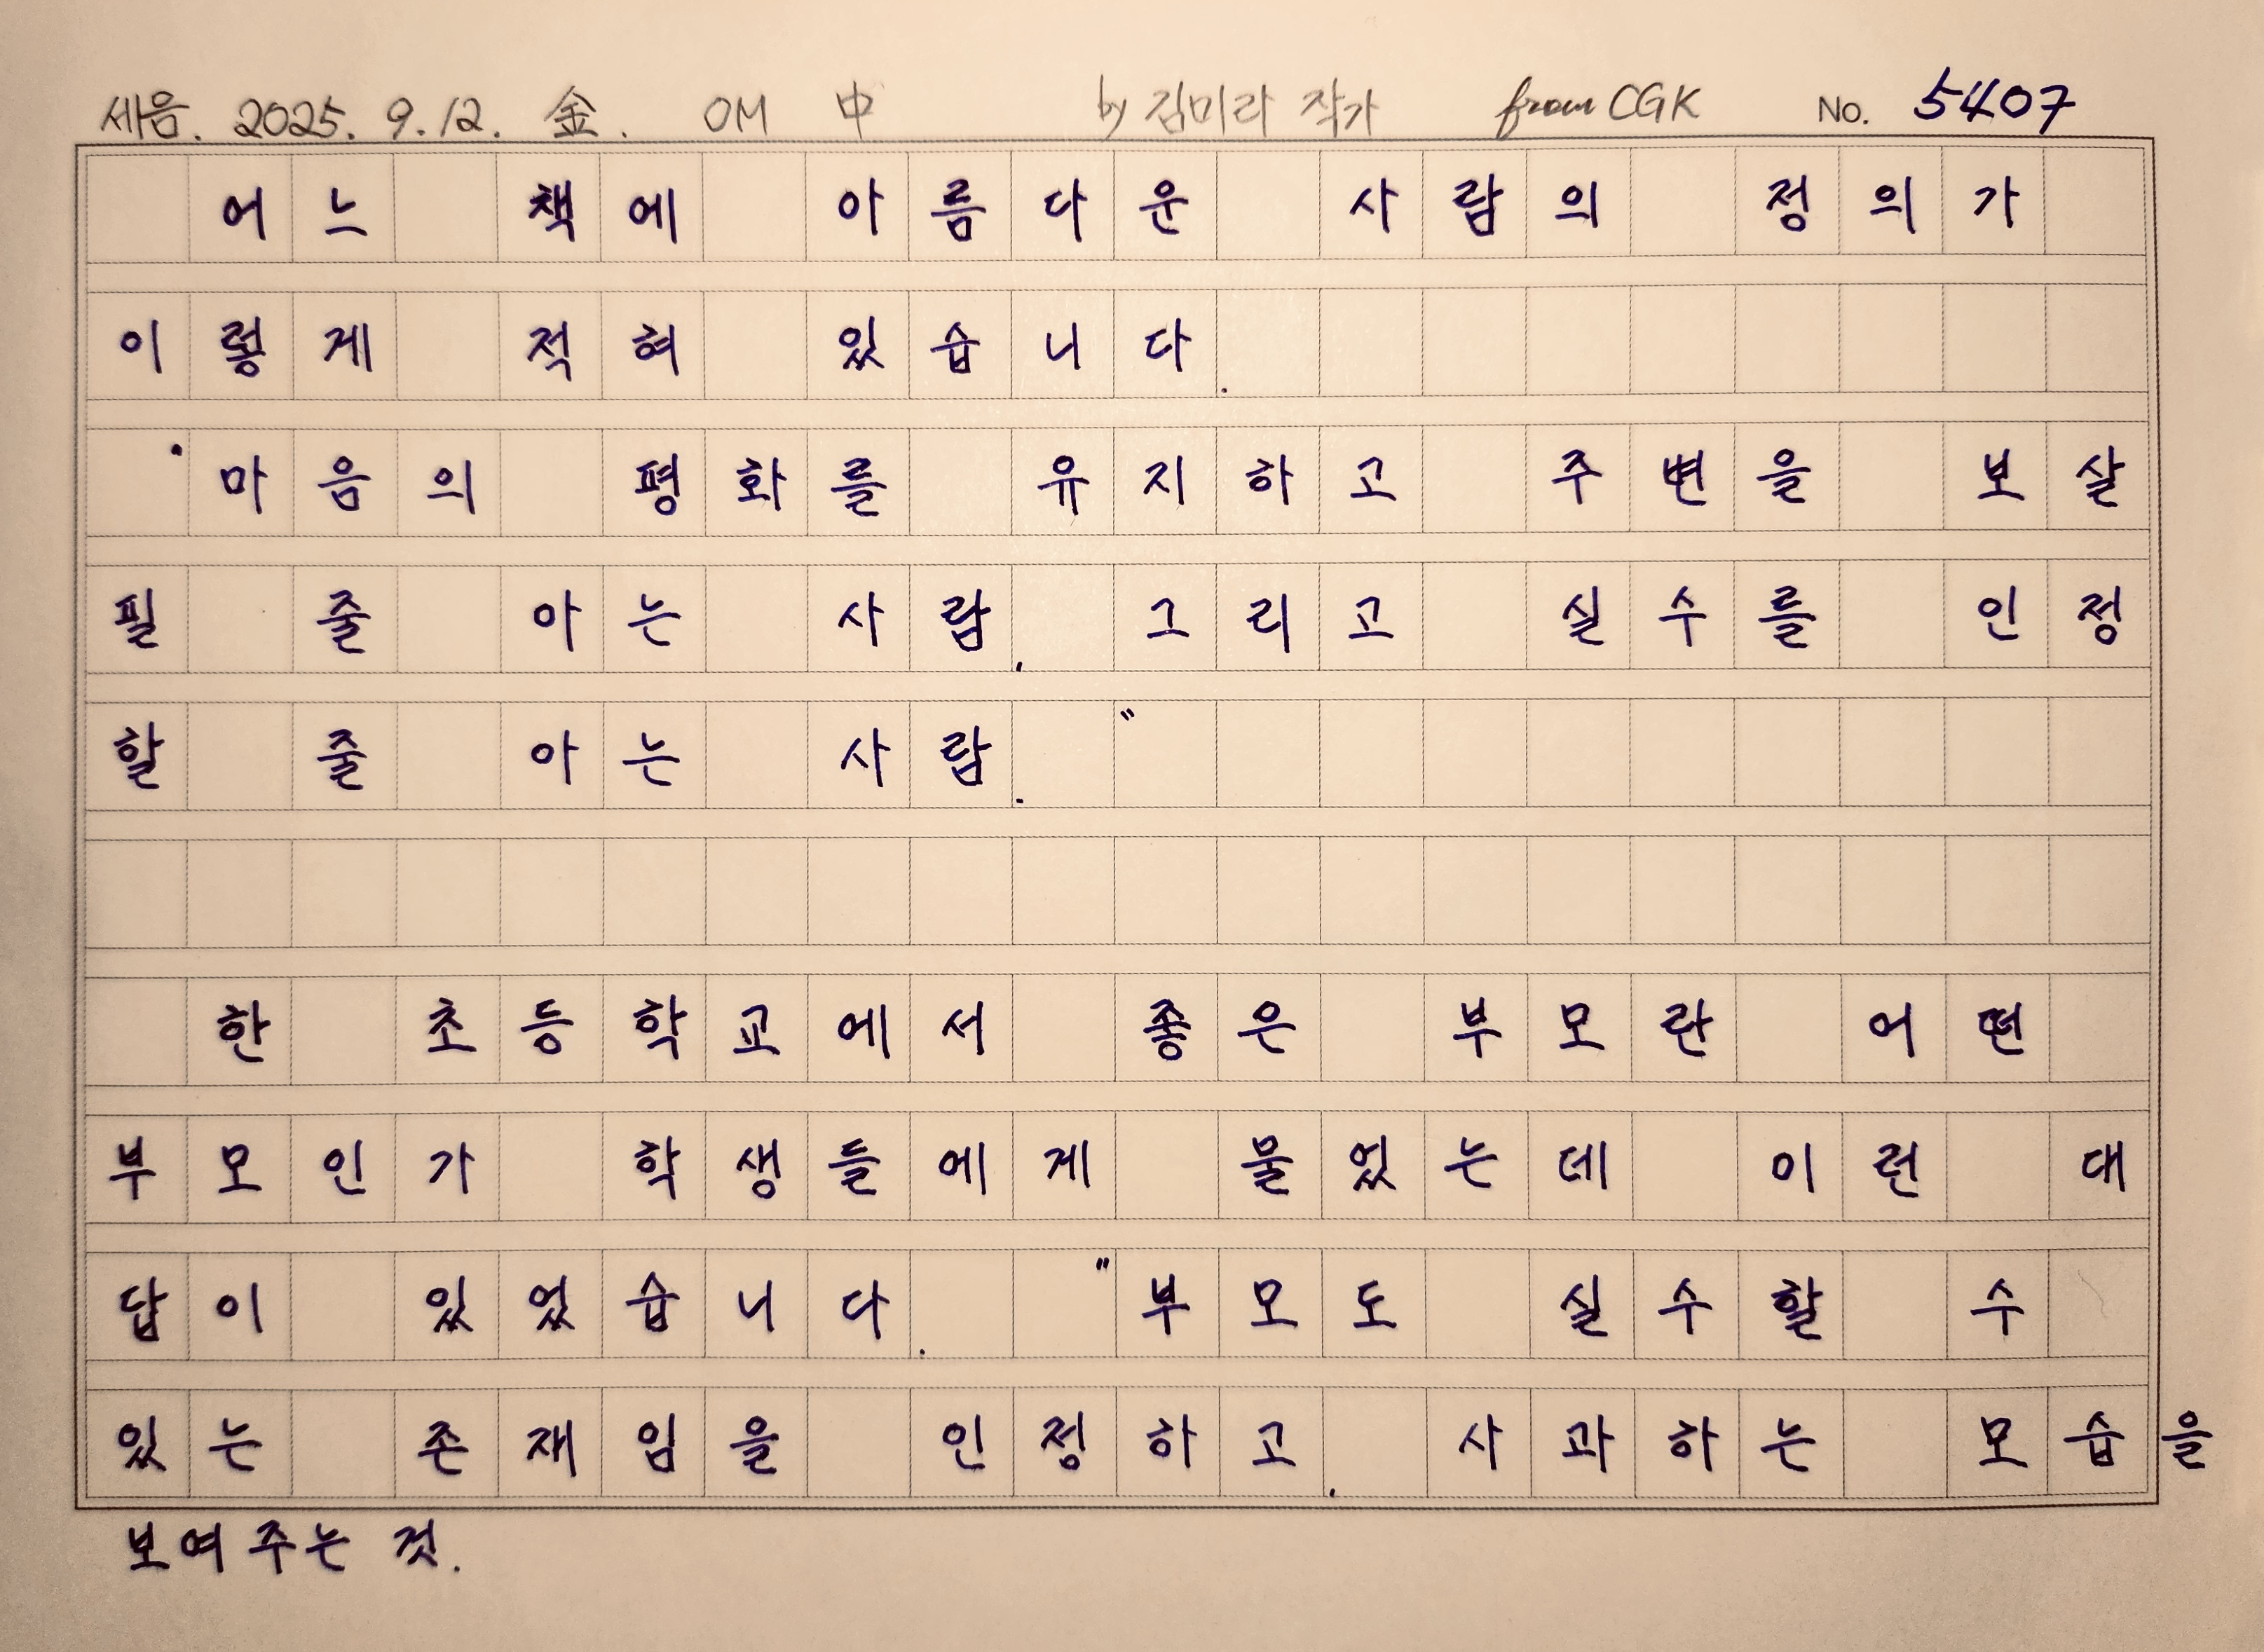 세음. 2025. 9. 12. 金. OM 中 by 김미라 작가 from CGK No. 5407
어느 책에 아름다운 사람의 정의가
이렇게 적혀 있습니다.
'마음의 평화를 유지하고 주변을 보살
필 줄 아는 사람. 그리고 실수를 인정
할 줄 아는 사람. "
한 초등학교에서 좋은 부모란 어떤
부모인가 학생들에게 물었는데 이런 대
답이 있었습니다. "부모도 실수할 수
있는 존재임을 인정하고. 사과하는 모습을
보여주는 것.